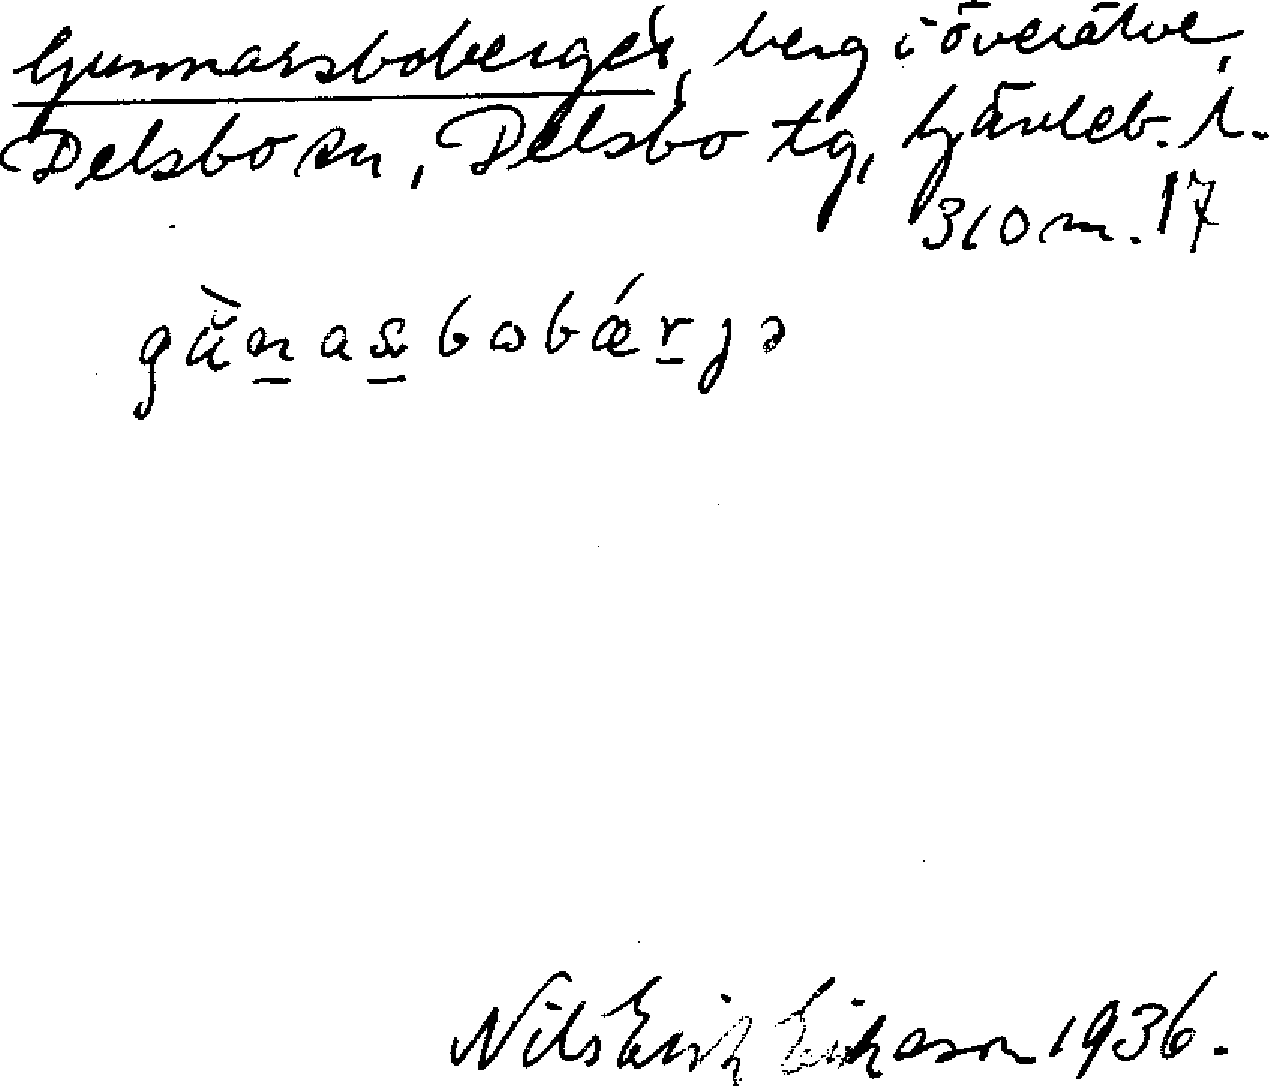 Gunnarsboberget, berg i Överälve,
Delsbo sn, Delsbo tg, Gävleb. l.
310 m. 17
gŭ̀nasbobǽrjə
Nils Erik Erikson 1936.